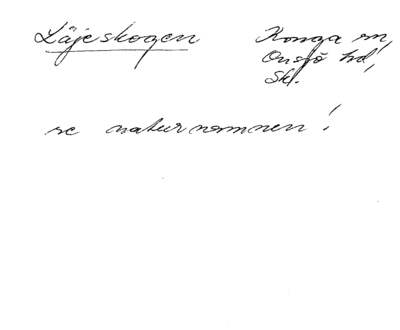 Läjeskogen
Konga sn,
Onsjö hd,
Skl.
se naturnamnen!